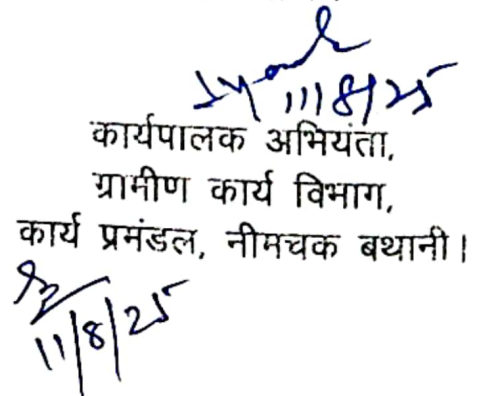 11/8/25
कार्यपालक अभियंता,
ग्रामीण कार्य विभाग,
कार्य प्रमंडल, नीमचक बथानी।
11/8/25